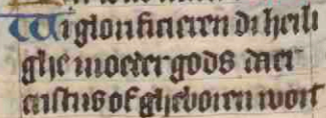 Wi glorificieren di heili
ghe moeder gods daer
cristus of gheboren wort